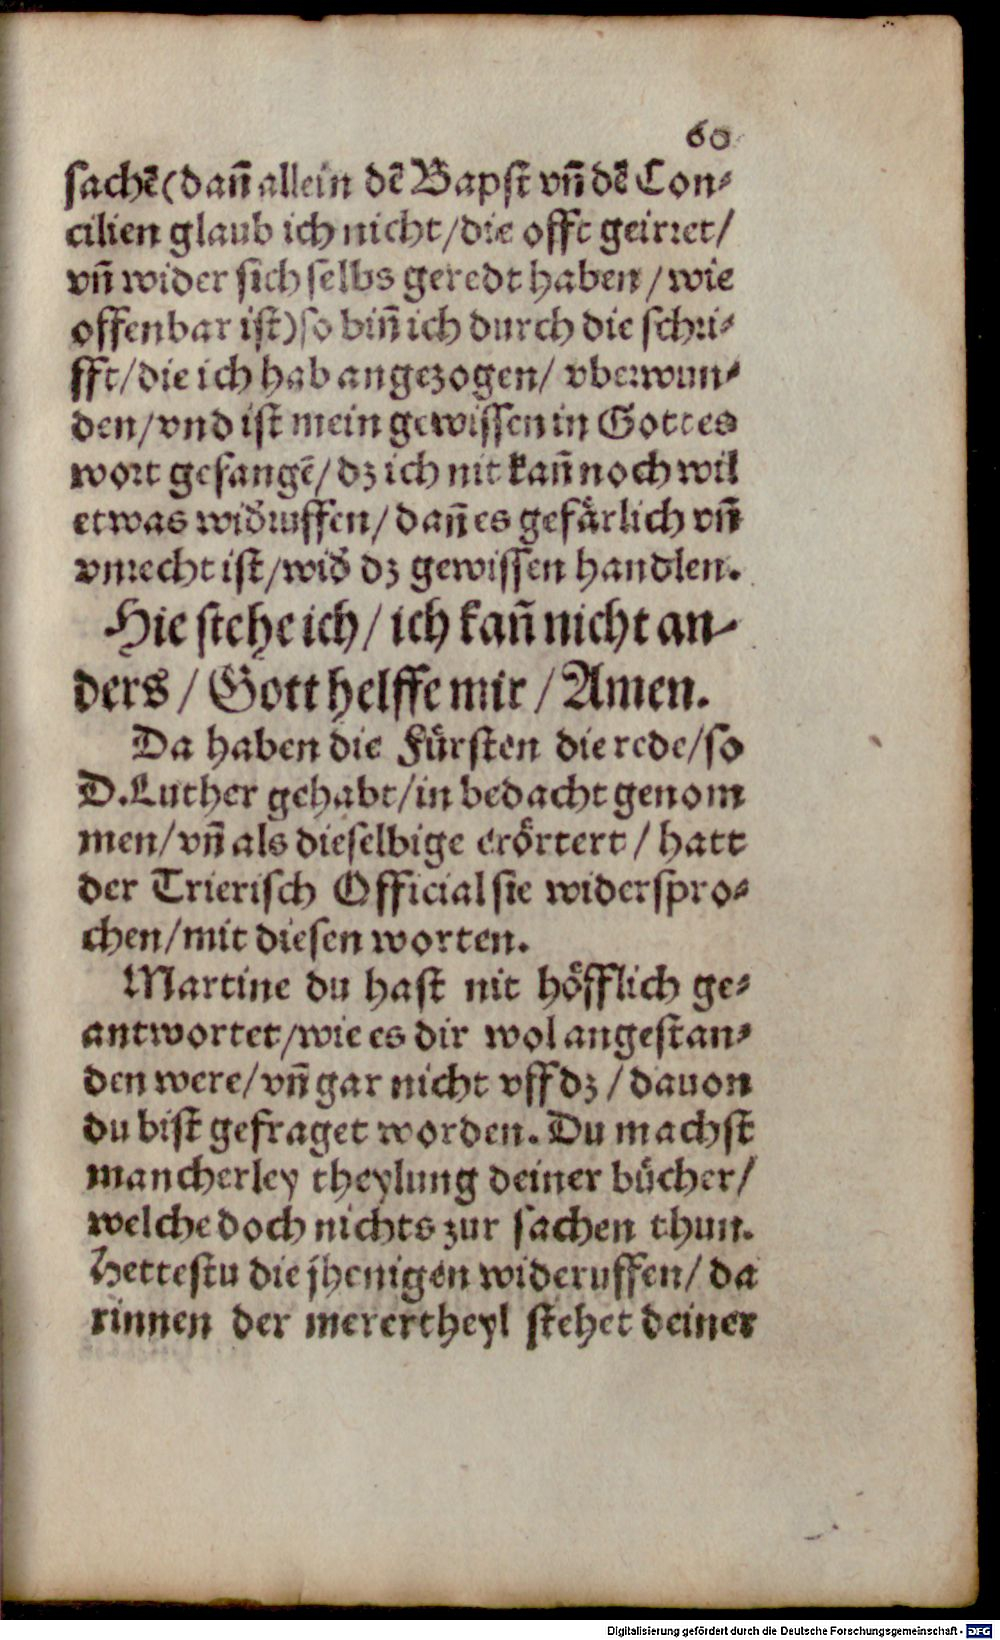 60
sachē (dañ allein dē Bapst vñ dē Con-
cilien glaub ich nicht / die offt geirret /
vñ wider sich selbs geredt haben / wie
offenbar ist) so biñ ich durch die schri-
fft / die ich hab angezogen / vberwun-
den / vnd ist mein gewissen in Gottes
wort gefangē / dz ich nit kañ noch wil
etwas widruffen / dañ es gefärlich vñ
vnrecht ist / wid dz gewissen handlen.
Hie stehe ich / ich kañ nicht an-
ders / Gott helffe mir / Amen.
Da haben die Fürsten die rede / so
D. Luther gehabt / in bedacht genom
men / vñ als dieselbige erörtert / hatt
der Trierisch Official sie widerspro-
chen / mit diesen worten.
Martine du hast nit höfflich ge-
antwortet / wie es dir wol angestan-
den were / vñ gar nicht vff dz / dauon
du bist gefraget worden. Du machst
mancherley theylung deiner bücher /
welche doch nichts zur sachen thun.
Hettestu die jhenigen wideruffen / da
rinnen der merertheyl stehet deiner
Digitalisierung gefördert durch die Deutsche Forschungsgemeinschaft - DFG